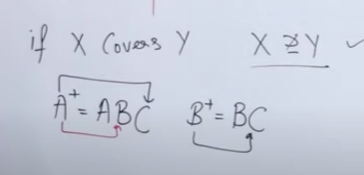 if X Covers Y X ⊉ Y ✓
A⁺ = ABC B⁺ = BC